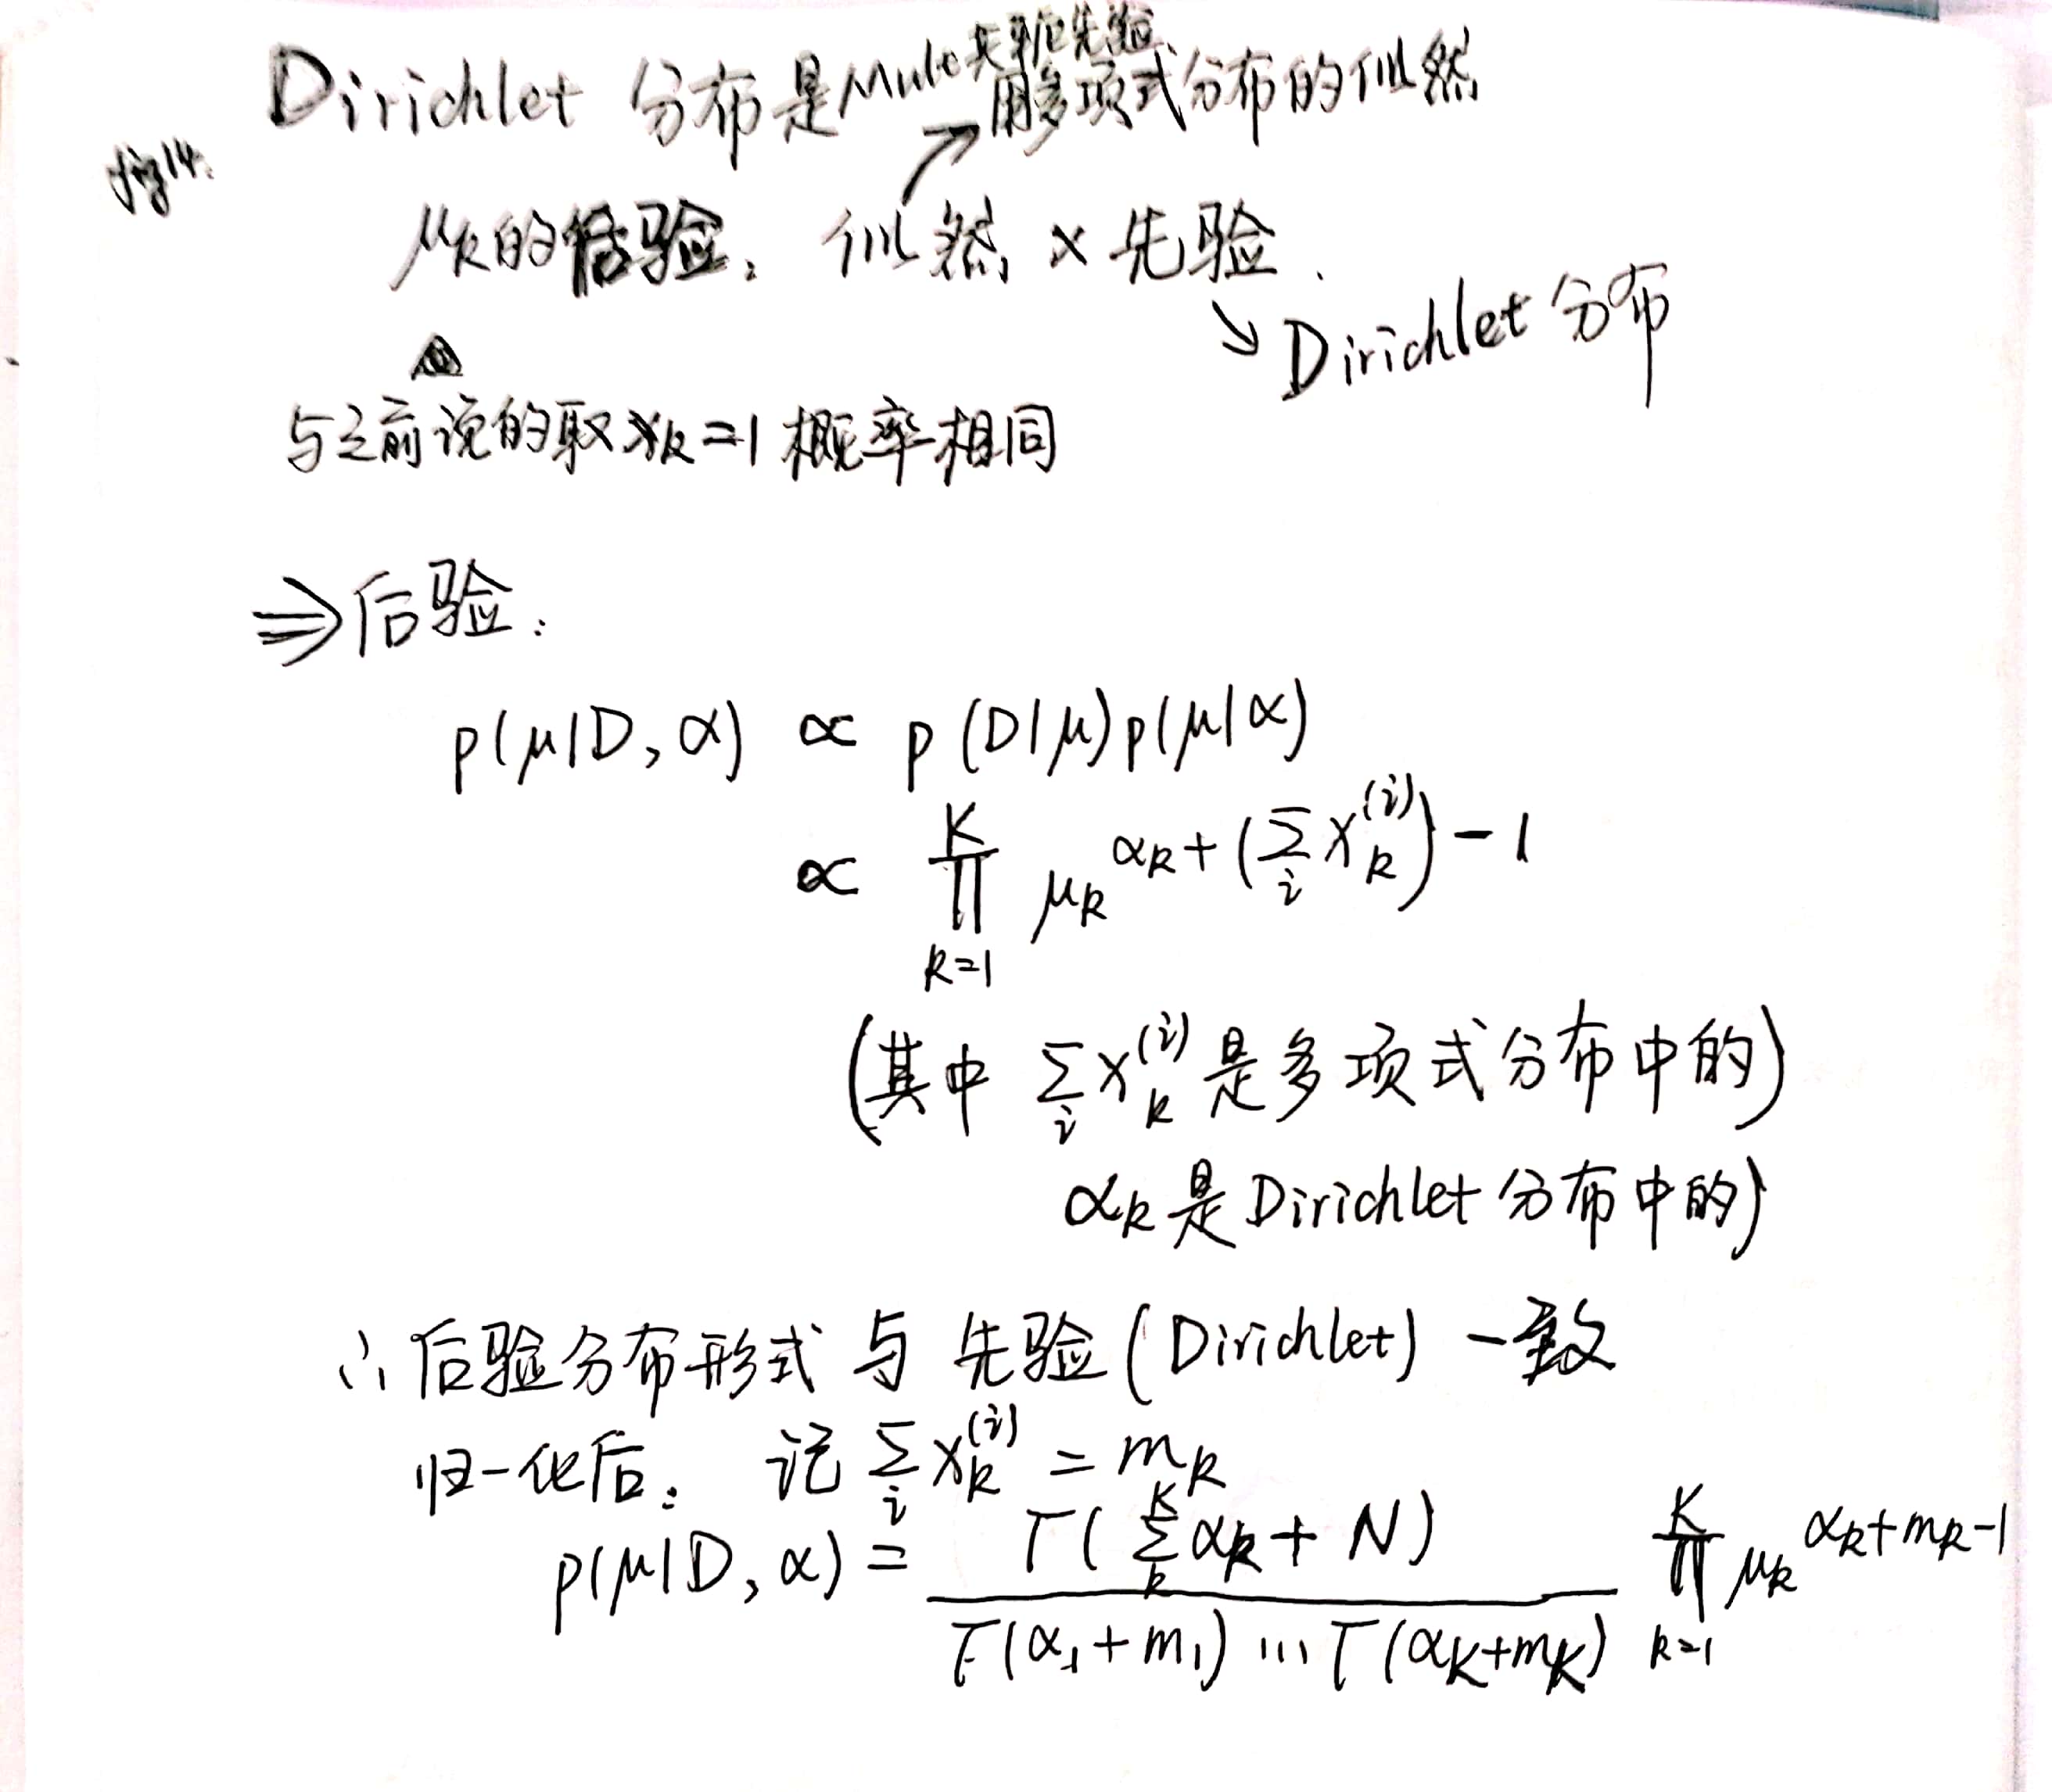 共轭先验
Dirichlet 分布是Mult 用多项式分布的似然
fig14:
μk的后验: 似然 × 先验.
↘ Dirichlet 分布
与之前说的取xk=1概率相同
⇒后验:
p(μ|D, α) ∝ p(D|μ)p(μ|α)
∝ ∏_{k=1}^{K} μk^{αk+(∑_i x_k^{(i)})-1}
(其中 ∑_i x_k^{(i)} 是多项式分布中的)
αk是Dirichlet 分布中的)
∴ 后验分布形式 与 先验(Dirichlet) 一致
归一化后: 记 ∑_i x_k^{(i)} = mk
p(μ|D, α) = Γ(∑_k^K αk + N) / Γ(α1+m1) ... Γ(αK+mK) ∏_{k=1}^{K} μk^{αk+mk-1}